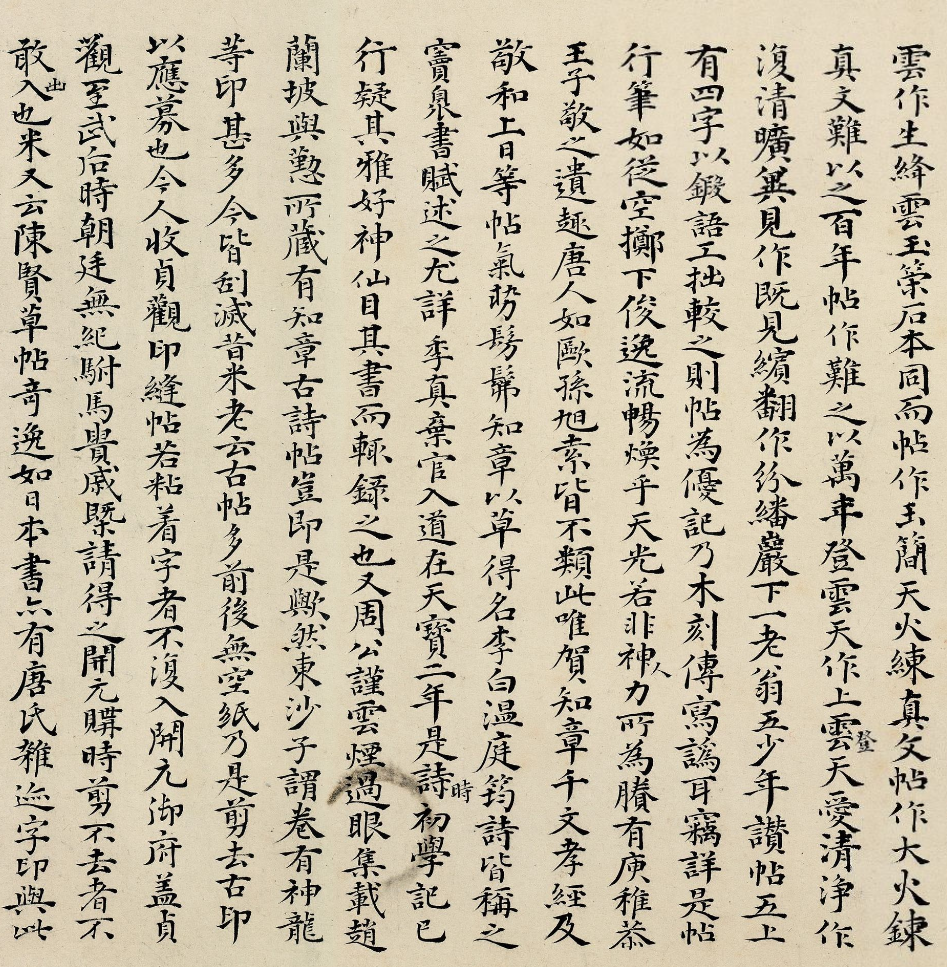 雲作生絳雲玉策石本同而帖作玉簡天火練真文帖作大火鍊
真文難以之百年帖作難之以萬年登雲天作上雲登天愛清淨作
復清曠無見作既見繽翻作紛繙巖下一老翁五少年讚帖五上
有四字以鍛語工拙較之則帖為優記乃木刻傳寫譌耳竊詳是帖
行筆如從空擲下俊逸流暢煥乎天光若非神人力所為賸有庾稚恭
王子敬之遺趣唐人如歐孫旭素皆不類此唯賀知章千文孝經及
敬和上日等帖氣勢髣髴知章以草得名李白溫庭筠詩皆稱之
竇泉書賦述之尤詳季真棄官入道在天寶二年是詩時初學記已
行疑其雅好神仙目其書而輙錄之也又周公謹雲煙過眼集載趙
蘭坡與懃所藏有知章古詩帖豈即是歟然東沙子謂卷有神龍
等印甚多今皆刮滅昔米老云古帖多前後無空紙乃是剪去古印
以應募也今人收貞觀印縫帖若粘着字者不復入開元御府盖貞
觀至武后時朝廷無紀駙馬貴戚槩請得之開元購時剪不去者不
敢出也米又云陳賢草帖奇逸如日本書亦有唐氏雜迹字印與此